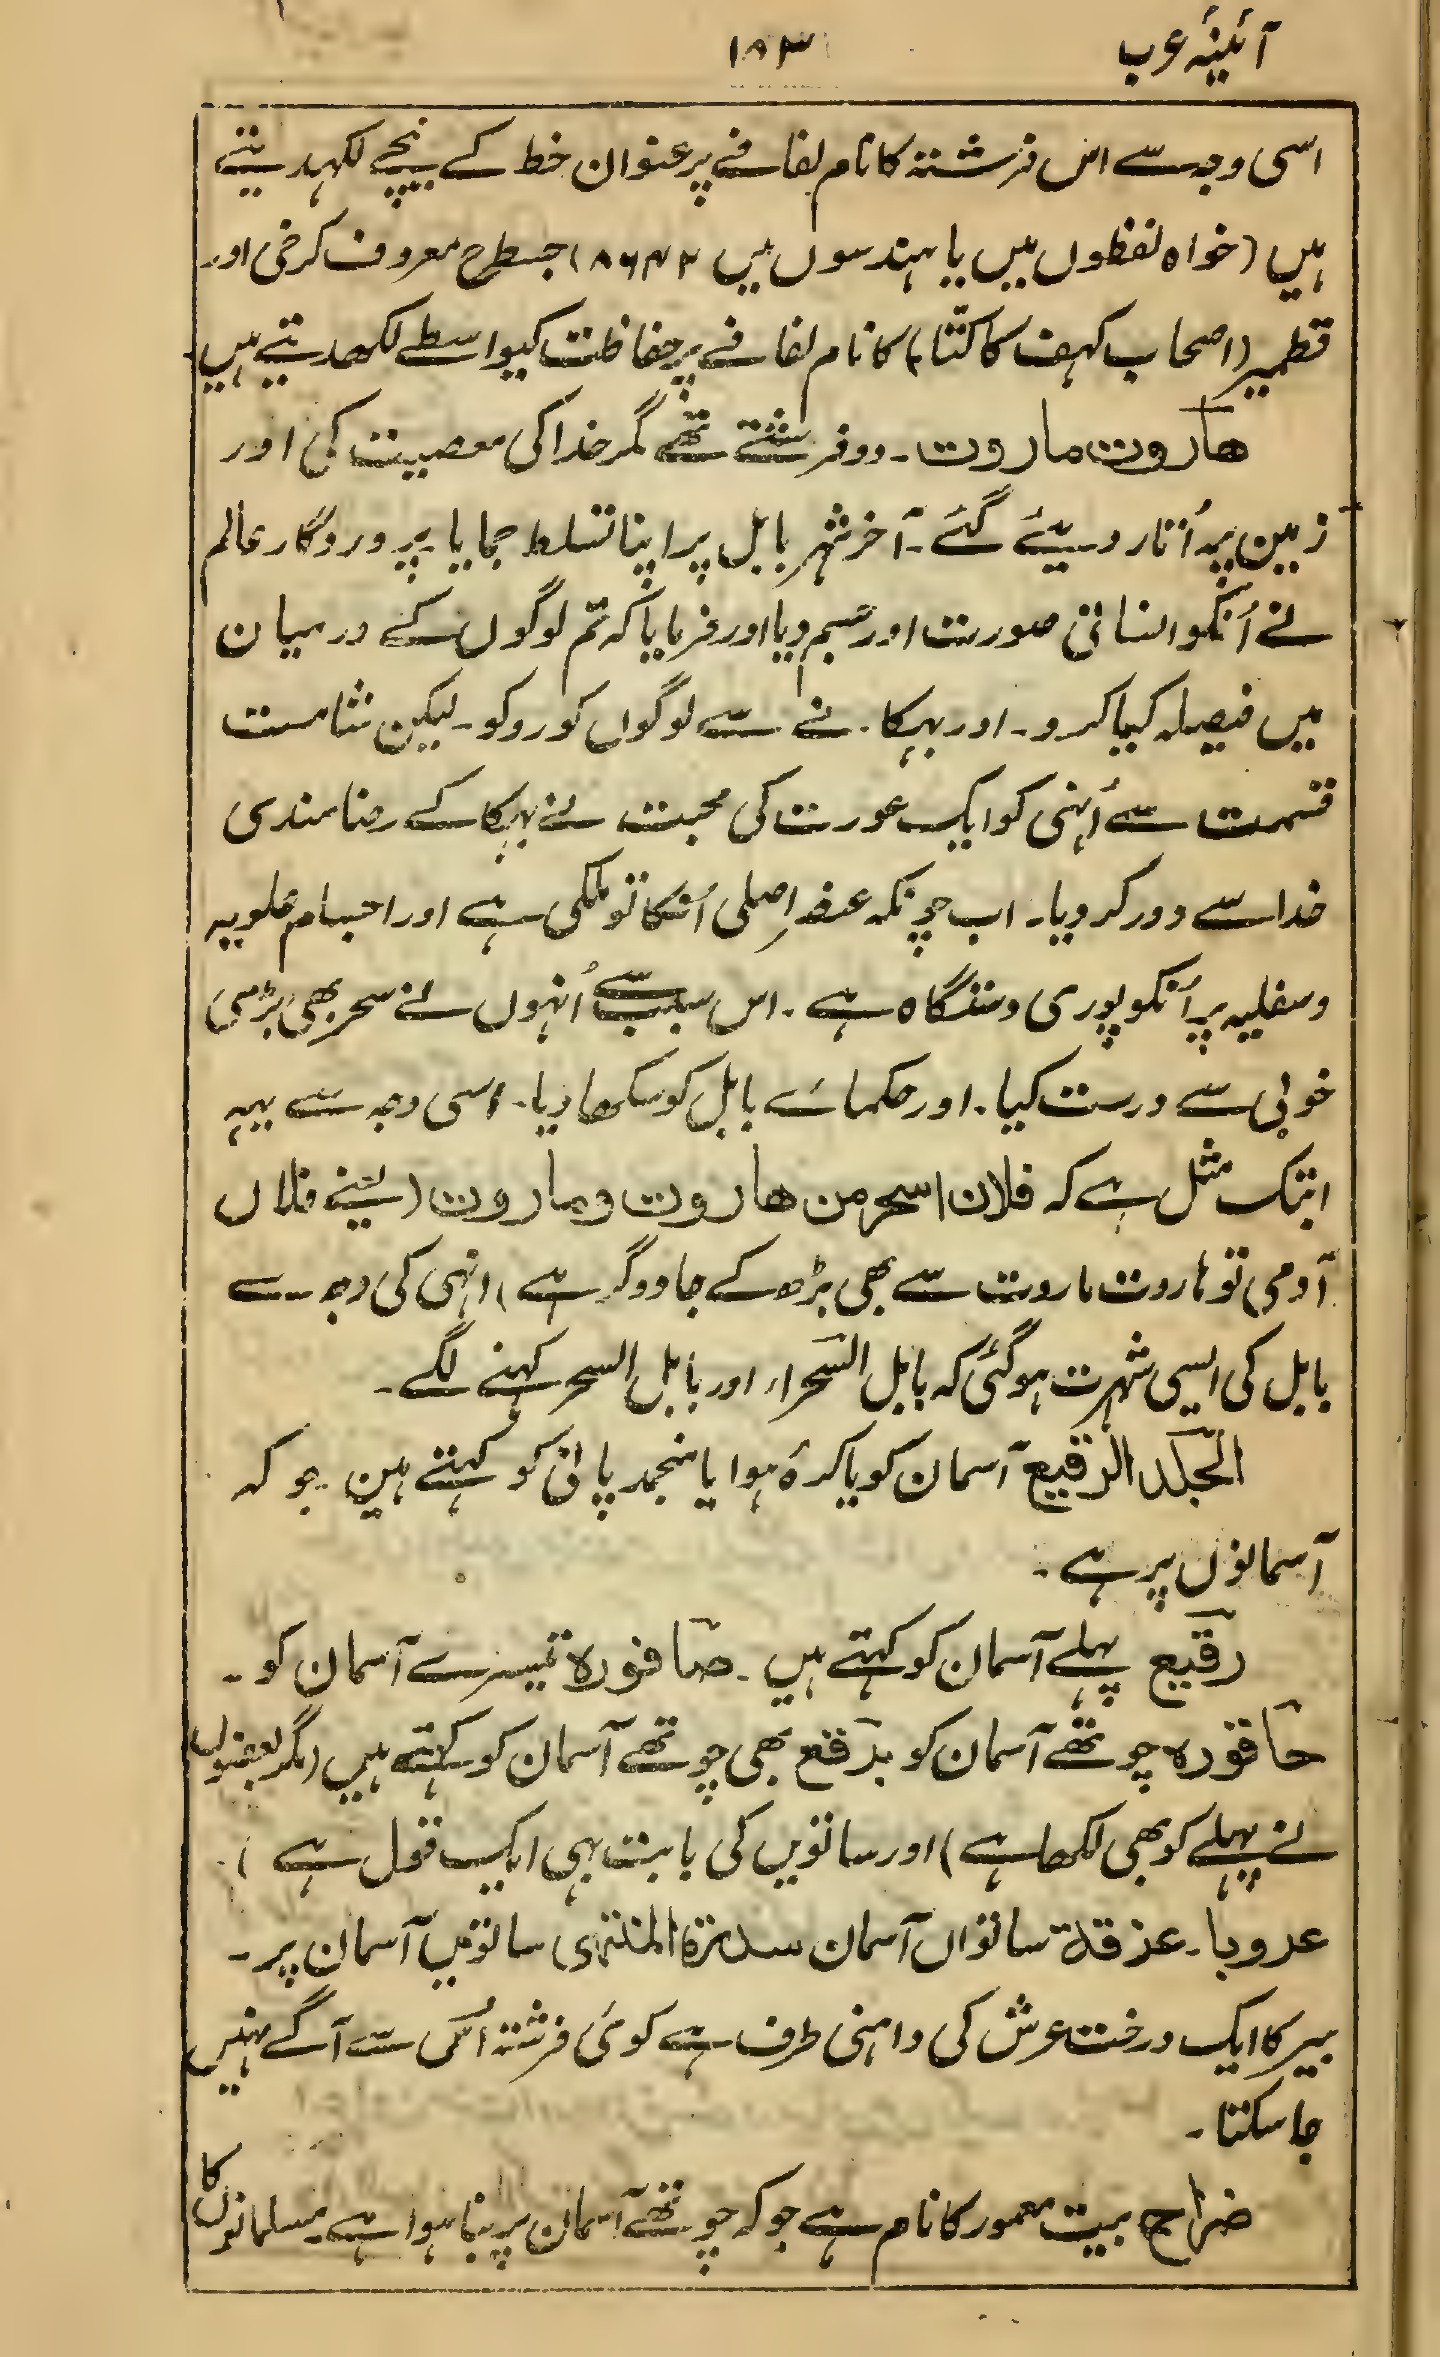 آئینۂ عرب
۱۸۳
اسی وجہ سے اس فرشتہ کا نام لفافے پر عنوان خط کے نیچے لکھدیتے
ہیں (خواہ لفظوں میں یا ہندسوں میں ۸۶۴۲) جسطرح معروف کرخی اور
قطمیر (اصحاب کہف کا کتّا) کا نام لفافے پر حفاظت کیواسطے لکھدیتے ہیں
ھاروت ماروت۔ دو فرشتے تھے مگر خدا کی معصیت کی اور
زمین پر اُتار دیئے گئے۔ آخر شہر بابل پر اپنا تسلط جمایا۔ پروردگار عالم
نے اُنکو انسانی صورت اور جسم دیا اور فرمایا کہ تم لوگوں کے درمیان
میں فیصلہ کیا کرو۔ اور بہکانے سے لوگوں کو روکو۔ لیکن شامت
قسمت سے اُنہی کو ایک عورت کی محبت نے بہکا کے رضامندی
خدا سے دور کر دیا۔ اب چونکہ عنصر اصلی اُنکا تو ملکی ہے اور اجسام علویہ
و سفلیہ پر اُنکو پوری دستگاہ ہے۔ اس سبب سے اُنہوں نے سحر بھی بڑی
خوبی سے درست کیا۔ اور حکمائے بابل کو سکھا دیا۔ اسی وجہ سے یہہ
ابتک مثل ہے کہ فلان اسحر من ھاروت وماروت (یعنے فلاں
آدمی تو ہاروت ماروت سے بھی بڑھ کے جادوگر ہے) انہی کی وجہ سے
بابل کی ایسی شہرت ہو گئی کہ بابل السحراء اور بابل السحر کہنے لگے۔
الجلد الرقیع آسمان کو یا کرۂ ہوا یا منجمد پانی کو کہتے ہیں۔ جو کہ
آسمانوں پر ہے۔
رقیع پہلے آسمان کو کہتے ہیں۔ صاقورہ تیسرے آسمان کو۔
حاقورہ چوتھے آسمان کو برقع بھی چوتھے آسمان کو کہتے ہیں (مگر بعضوں
نے پہلے کو بھی لکھا ہے) اور ساتویں کی بابت بھی ایک قول ہے)
عروبا۔ ساتواں آسمان سدرۃ المنتہی ساتویں آسمان پر۔
بیر کا ایک درخت عرش کی داہنی طرف ہے کوئی فرشتہ اُس سے آگے نہیں
جا سکتا۔
ضراح بیت معمور کا نام ہے جو کہ چوتھے آسمان پر بنا ہوا ہے۔ مسلمانوں کا